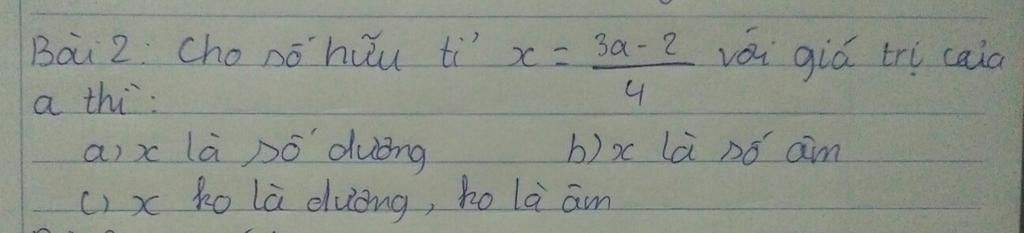 Bài 2: Cho số hữu tỉ x = \frac{3a-2}{4} với giá trị của
a thì:
a) x là số dương b) x là số âm
c) x ko là dương, ko là âm